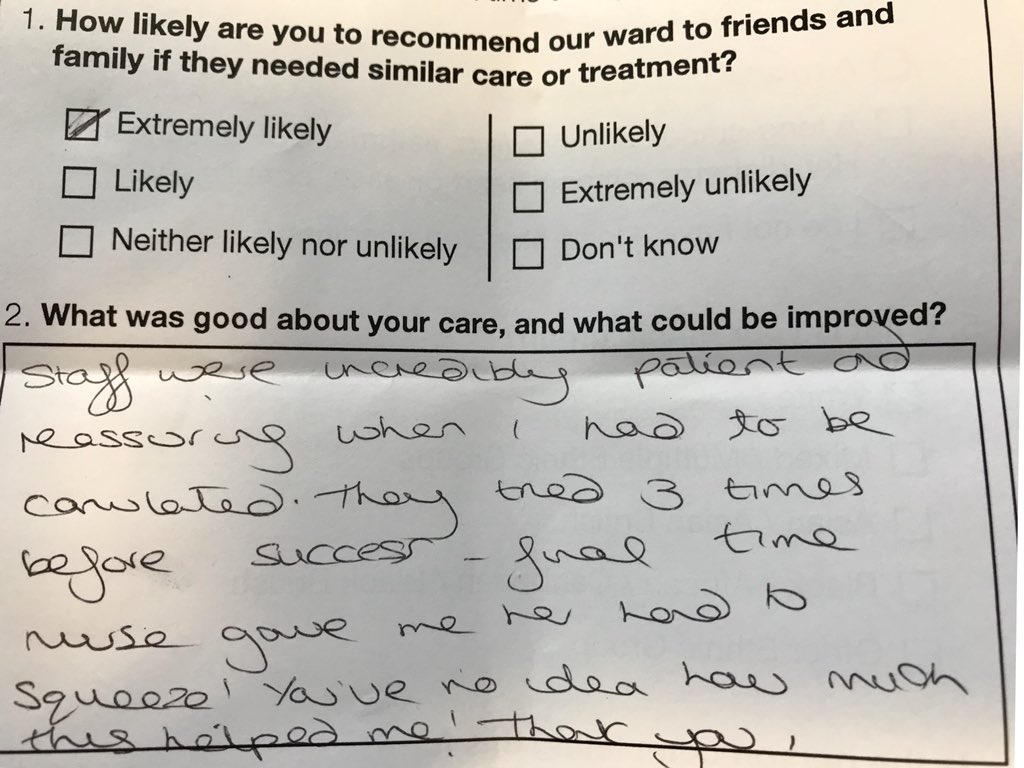 1. How likely are you to recommend our ward to friends and
family if they needed similar care or treatment?
Extremely likely
Likely
Neither likely nor unlikely
Unlikely
Extremely unlikely
Don't know
2. What was good about your care, and what could be improved?
Staff were incredibly patient and
reassuring when I had to be
canulated. They tried 3 times
before success - final time
nurse gave me her hand to
squeeze! You've no idea how much
this helped me! Thank you,